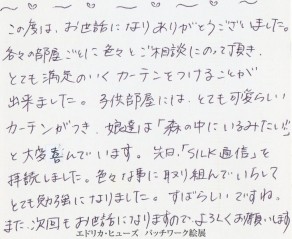 この度は、お世話になりありがとうございました。
各々の部屋ごとに色々とご相談にのって頂き、
とても満足のいくカーテンをつけることが
出来ました。子供部屋には、とても可愛らしい
カーテンがつき、娘達は「森の中にいるみたい!」
と大変喜んでいます。先日、「SILK通信」を
拝読しました。色々な事に取り組んでいらして
とても勉強になりました。すばらしいですね。
また、次回もお世話になりますので、よろしくお願いします
エドリカ・ヒューズ パッチワーク絵展